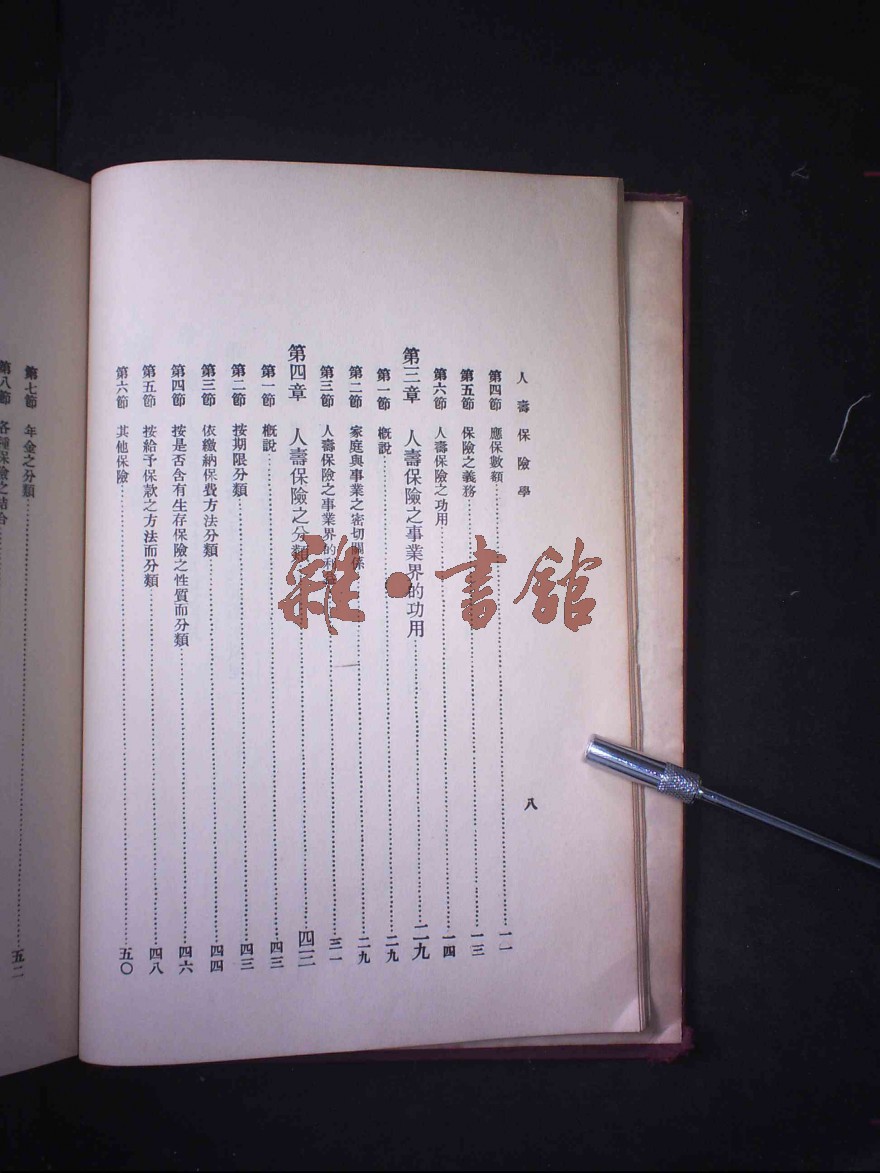 人壽保險學
八
第四節 應保數額……一一
第五節 保險之義務……一三
第六節 人壽保險之功用……一四
第三章 人壽保險之事業界的功用……二九
第一節 概說……二九
第二節 家庭與事業之密切關係……二九
第三節 人壽保險之事業界的利……三一
第四章 人壽保險之分類……四三
第一節 概說……四三
第二節 按期限分類……四三
第三節 依繳納保費方法分類……四四
第四節 按是否含有生存保險之性質而分類……四六
第五節 按給予保款之方法而分類……四八
第六節 其他保險……五〇
第七節 年金之分類……五二
第八節 各種保險之結合
雜·書館